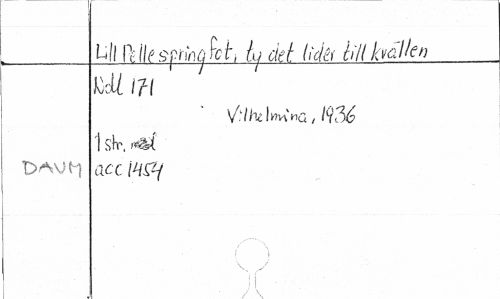 Lill Pelle spring fot, ty det lider till kvällen
Noll 171
Vilhelmina, 1936
1 str.
DAUM acc 1454